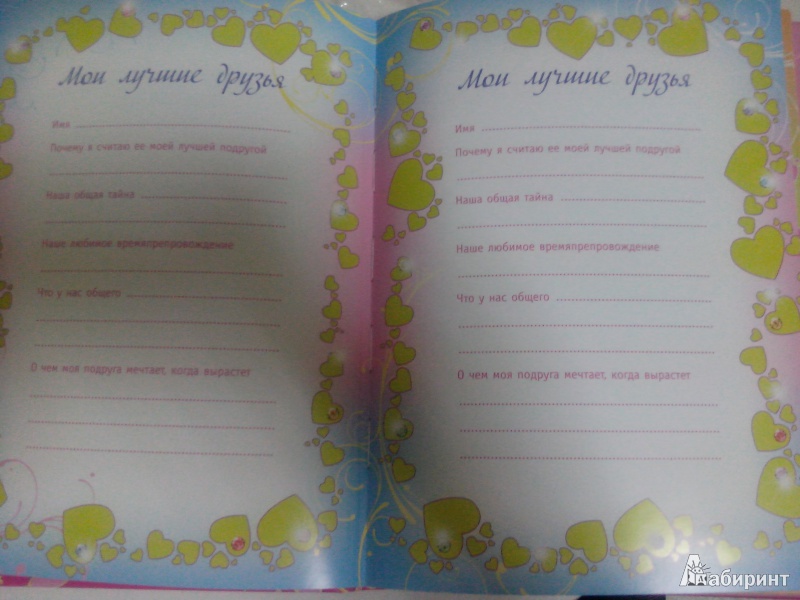 Мои лучшие друзья
Имя
Почему я считаю ее моей лучшей подругой
Наша общая тайна
Наше любимое времяпрепровождение
Что у нас общего
О чем моя подруга мечтает, когда вырастет
Мои лучшие друзья
Имя
Почему я считаю ее моей лучшей подругой
Наша общая тайна
Наше любимое времяпрепровождение
Что у нас общего
О чем моя подруга мечтает, когда вырастет
Лабиринт